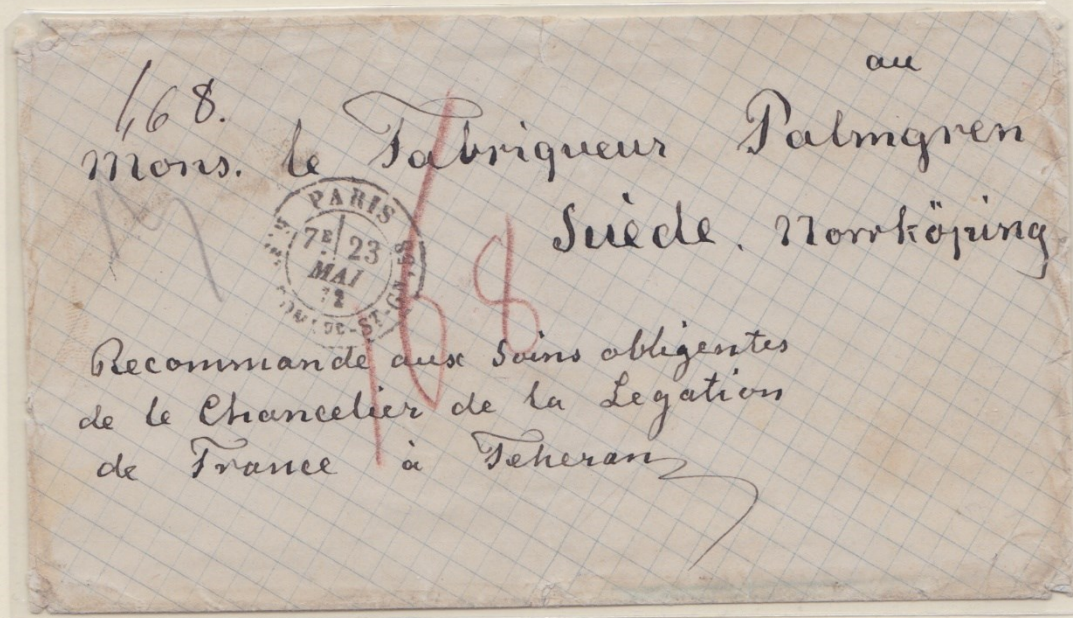 au
168.
Mons. le Fabriqueur Palmgren
Suède. Norrköping
PARIS
7E 23
MAI
72
168
Recommande aux soins obligentes
de le Chancelier de la Legation
de France à Teheran